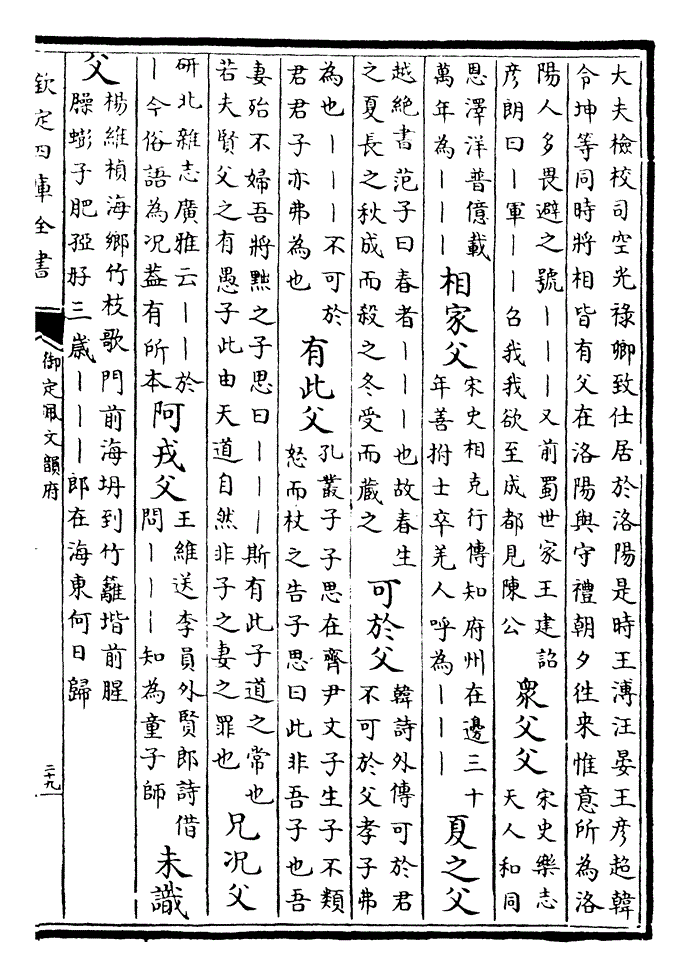 大夫檢校司空光祿卿致仕居於洛陽是時王溥汪晏王彥超韓
令坤等同時將相皆有父在洛陽與守禮朝夕徃来惟意所為洛
陽人多畏避之號丨丨丨又前蜀世家王建詔
彥朗曰丨軍丨丨召我我欲至成都見陳公
衆父父
宋史樂志
天人和同
恩澤洋普億載
萬年為丨丨丨
相家父
宋史相克行傳知府州在邊三十
年善拊士卒羌人呼為丨丨丨
夏之父
越絶書范子曰春者丨丨丨也故春生
之夏長之秋成而殺之冬受而藏之
可於父
韓詩外傳可於君
不可於父孝子弗
為也丨丨丨不可於
君君子亦弗為也
有此父
孔叢子子思在齊尹文子生子不類
怒而杖之告子思曰此非吾子也吾
妻殆不婦吾將黜之子思曰丨丨丨斯有此子道之常也
若夫賢父之有愚子此由天道自然非子之妻之罪也
兄况父
研北雜志廣雅云丨丨於
丨今俗語為况葢有所本
阿戎父
王維送李員外賢郎詩借
問丨丨丨知為童子師
未識
父
楊維楨海鄉竹枝歌門前海坍到竹籬堦前腥
臊蟛子肥孲三歲丨丨丨郎在海東何日歸
欽定四庫全書
御定佩文韻府
二十九